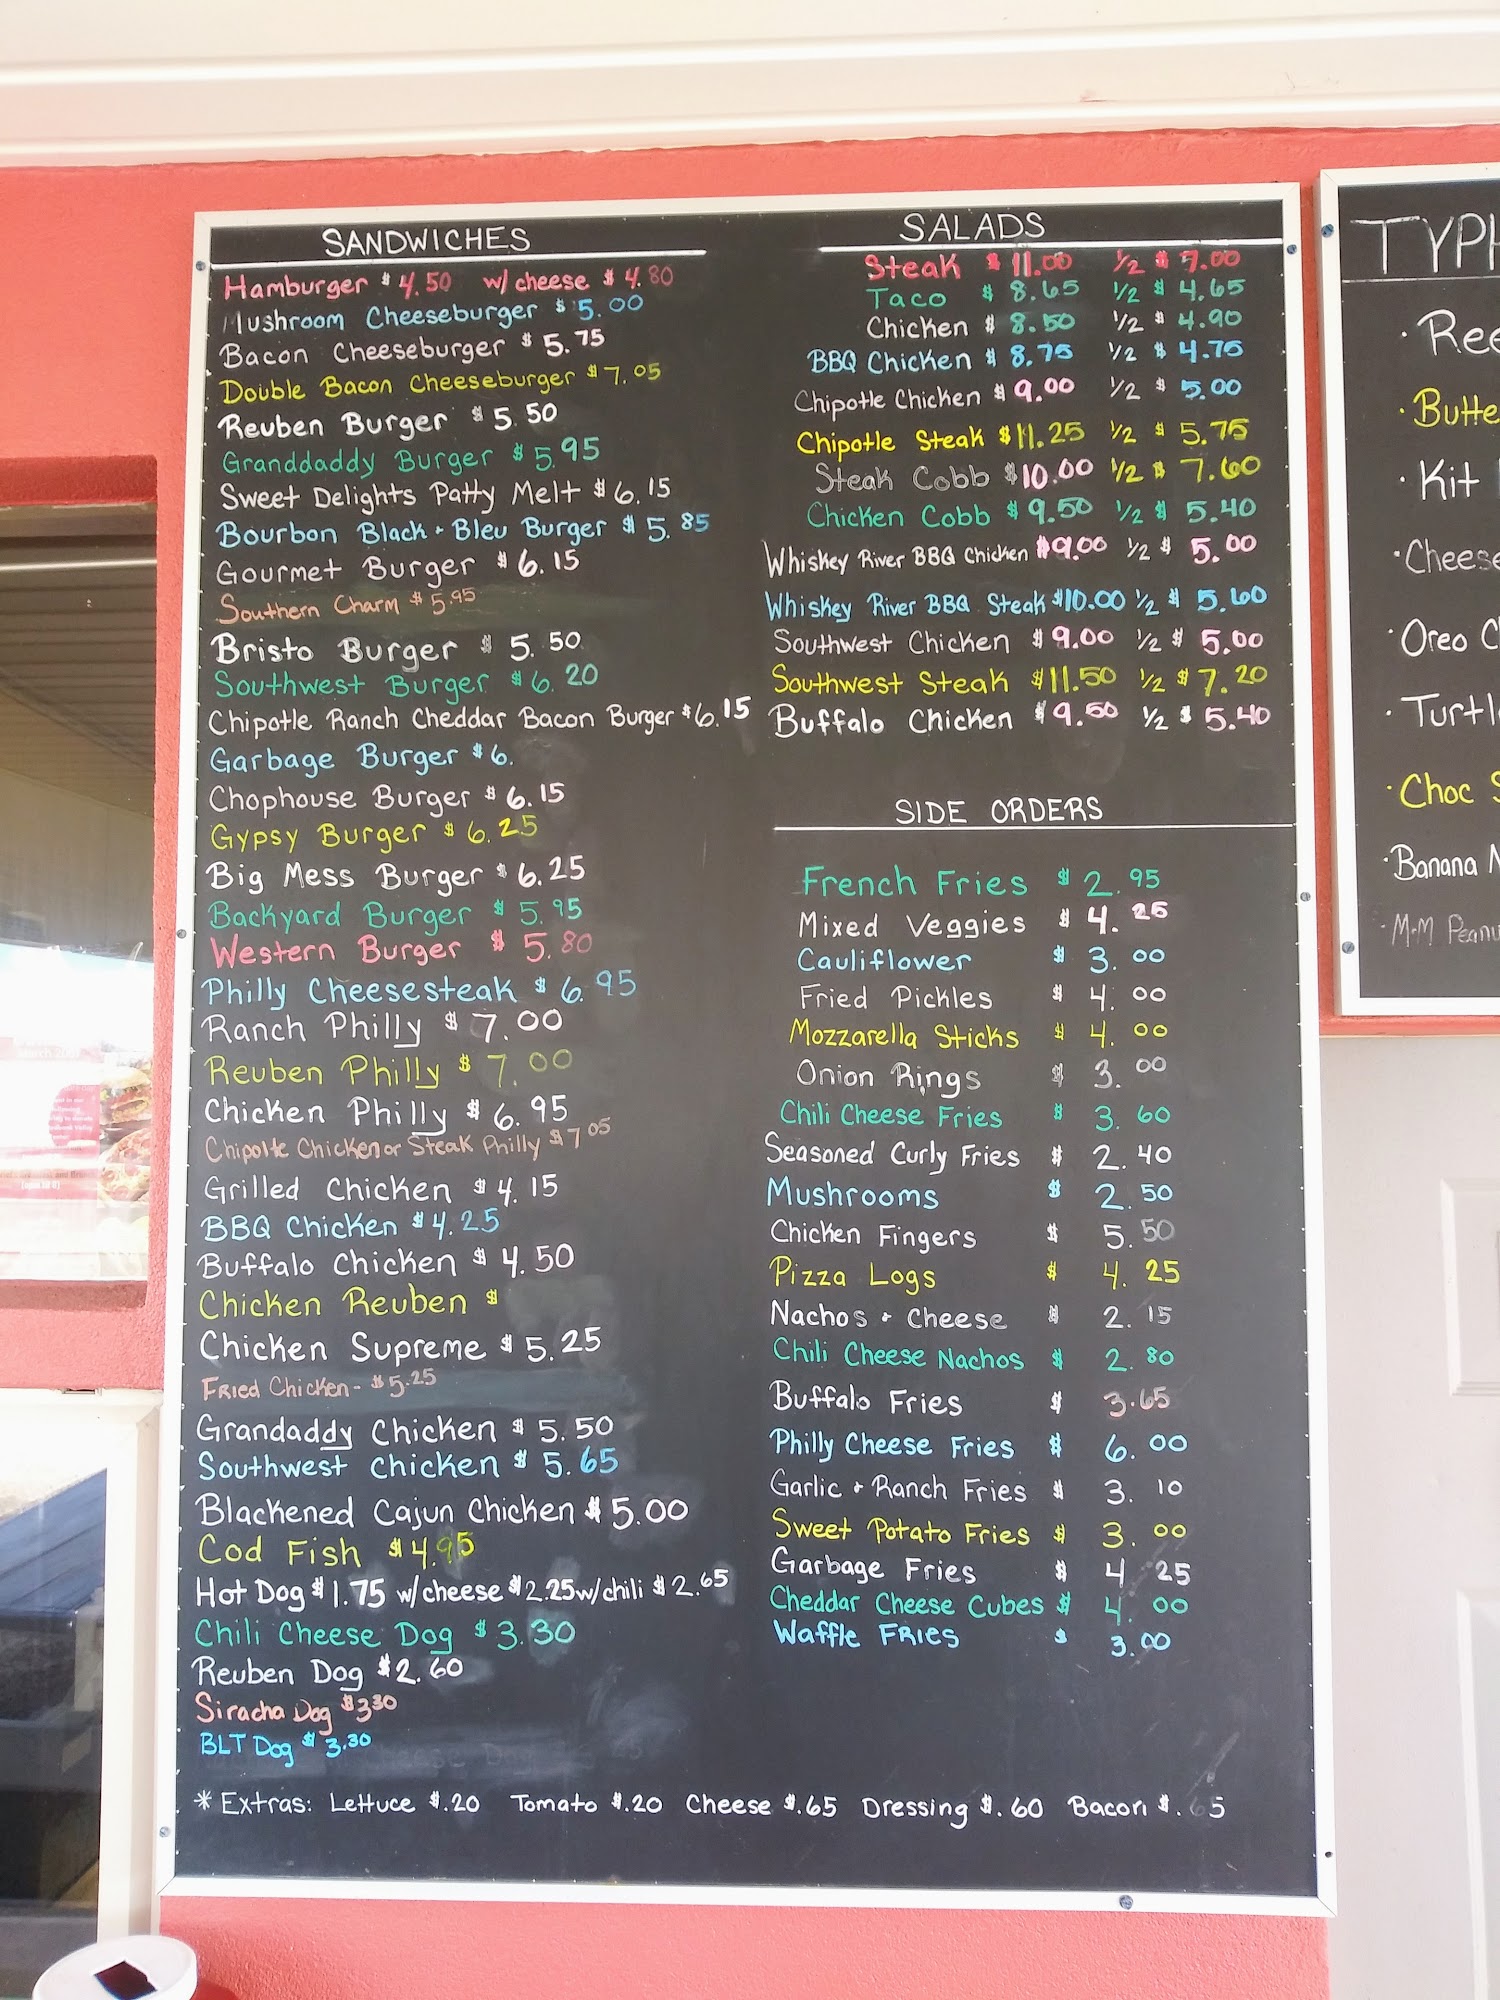 SANDWICHES
Hamburger $4.50 w/ cheese $4.80
Mushroom Cheeseburger $5.00
Bacon Cheeseburger $5.75
Double Bacon Cheeseburger $7.05
Reuben Burger $5.50
Granddaddy Burger $5.95
Sweet Delights Patty Melt $6.15
Bourbon Black + Bleu Burger $5.85
Gourmet Burger $6.15
Southern Charm $5.95
Bristo Burger $5.50
Southwest Burger $6.20
Chipotle Ranch Cheddar Bacon Burger $6.15
Garbage Burger $6.
Chophouse Burger $6.15
Gypsy Burger $6.25
Big Mess Burger $6.25
Backyard Burger $5.95
Western Burger $5.80
Philly Cheesesteak $6.95
Ranch Philly $7.00
Reuben Philly $7.00
Chicken Philly $6.95
Chipotle Chicken or Steak Philly $7.05
Grilled Chicken $4.15
BBQ Chicken $4.25
Buffalo Chicken $4.50
Chicken Reuben $
Chicken Supreme $5.25
Fried Chicken - $5.25
Grandaddy Chicken $5.50
Southwest Chicken $5.65
Blackened Cajun Chicken $5.00
Cod Fish $4.95
Hot Dog $1.75 w/cheese $2.25 w/chili $2.65
Chili Cheese Dog $3.30
Reuben Dog $2.60
Siracha Dog $3.30
BLT Dog $3.30
SALADS
Steak $11.00 1/2 $7.00
Taco $8.65 1/2 $4.65
Chicken $8.50 1/2 $4.90
BBQ Chicken $8.75 1/2 $4.75
Chipotle Chicken $9.00 1/2 $5.00
Chipotle Steak $11.25 1/2 $5.75
Steak Cobb $10.00 1/2 $7.60
Chicken Cobb $9.50 1/2 $5.40
Whiskey River BBQ Chicken $9.00 1/2 $5.00
Whiskey River BBQ Steak $10.00 1/2 $5.60
Southwest Chicken $9.00 1/2 $5.00
Southwest Steak $11.50 1/2 $7.20
Buffalo Chicken $9.50 1/2 $5.40
SIDE ORDERS
French Fries $2.95
Mixed Veggies $4.25
Cauliflower $3.00
Fried Pickles $4.00
Mozzarella Sticks $4.00
Onion Rings $3.00
Chili Cheese Fries $3.60
Seasoned Curly Fries $2.40
Mushrooms $2.50
Chicken Fingers $5.50
Pizza Logs $4.25
Nachos + Cheese $2.15
Chili Cheese Nachos $2.80
Buffalo Fries $3.65
Philly Cheese Fries $6.00
Garlic + Ranch Fries $3.10
Sweet Potato Fries $3.00
Garbage Fries $4 25
Cheddar Cheese Cubes $4.00
Waffle Fries $3.00
* Extras: Lettuce $.20 Tomato $.20 Cheese $.65 Dressing $.60 Bacon $.65
TYPH
· Ree
· Butte
· Kit
· Cheese
· Oreo C
· Turtl
· Choc S
· Banana N
· M-M Peanu